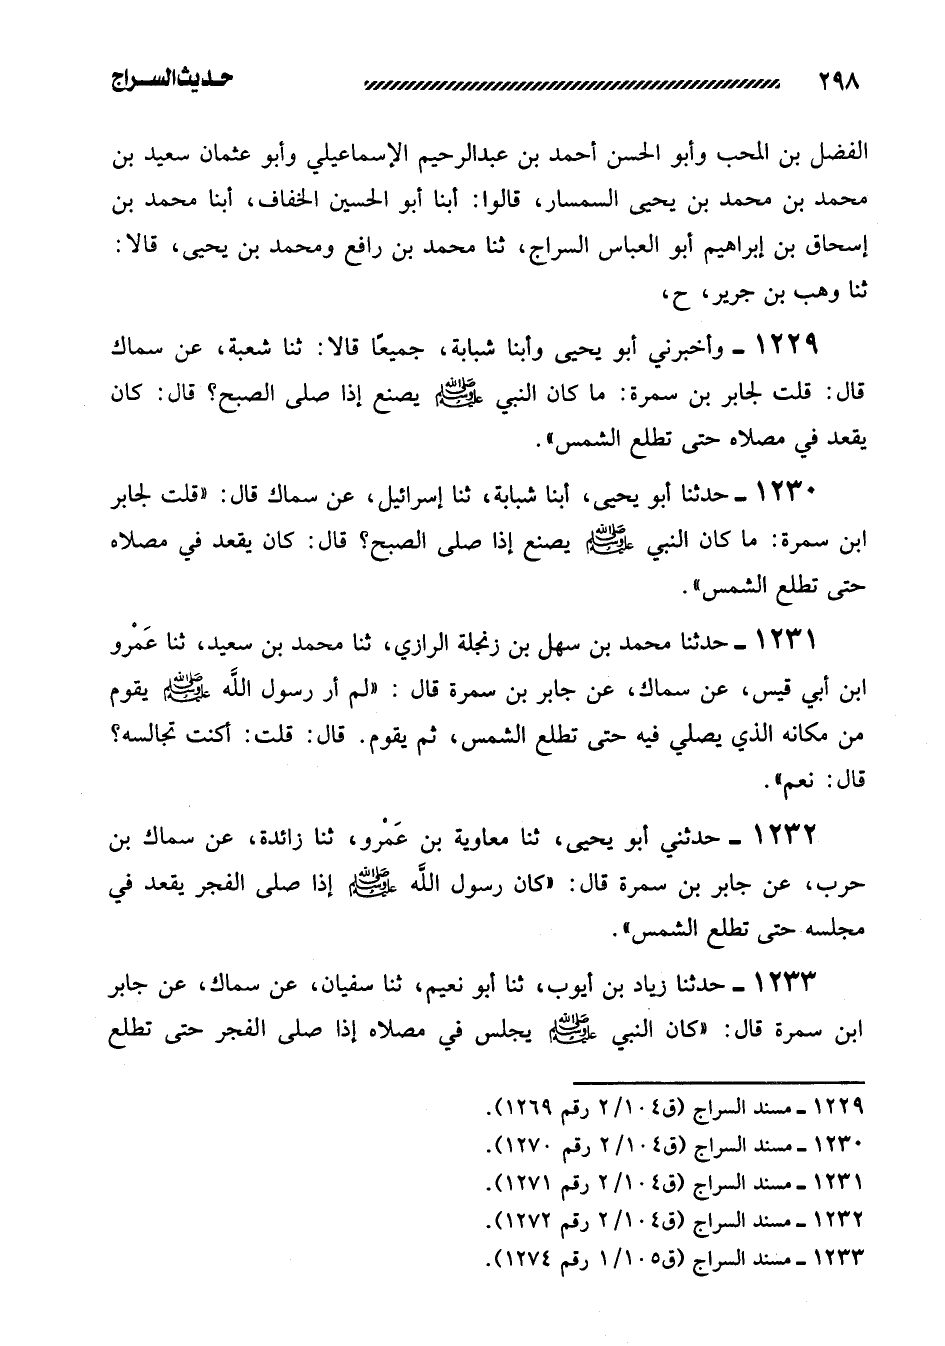 ٢٩٨ حديث السراج
الفضل بن المحب وأبو الحسن أحمد بن عبدالرحيم الإسماعيلي وأبو عثمان سعيد بن
محمد بن محمد بن يحيى السمسار، قالوا: أبنا أبو الحسين الخفاف، أبنا محمد بن
إسحاق بن إبراهيم أبو العباس السراج، ثنا محمد بن رافع ومحمد بن يحيى، قالا:
ثنا وهب بن جرير، ح،
١٢٢٩ ـ وأخبرني أبو يحيى وأبنا شبابة، جميعًا قالا: ثنا شعبة، عن سماك
قال: قلت لجابر بن سمرة: ما كان النبي ﷺ يصنع إذا صلى الصبح؟ قال: كان
يقعد في مصلاه حتى تطلع الشمس».
١٢٣٠ ـ حدثنا أبو يحيى، أبنا شبابة، ثنا إسرائيل، عن سماك قال: «قلت لجابر
ابن سمرة: ما كان النبي ﷺ يصنع إذا صلى الصبح؟ قال: كان يقعد في مصلاه
حتى تطلع الشمس».
١٢٣١ ـ حدثنا محمد بن سهل بن زنجلة الرازي، ثنا محمد بن سعيد، ثنا عَمْرو
ابن أبي قيس، عن سماك، عن جابر بن سمرة قال : «لم أر رسول اللَّه ﷺ يقوم
من مكانه الذي يصلي فيه حتى تطلع الشمس، ثم يقوم. قال: قلت: أكنت تجالسه؟
قال: نعم».
١٢٣٢ ـ حدثني أبو يحيى، ثنا معاوية بن عَمْرو، ثنا زائدة، عن سماك بن
حرب، عن جابر بن سمرة قال: «كان رسول اللَّه ﷺ إذا صلى الفجر يقعد في
مجلسه حتى تطلع الشمس».
١٢٣٣ ـ حدثنا زياد بن أيوب، ثنا أبو نعيم، ثنا سفيان، عن سماك، عن جابر
ابن سمرة قال: «كان النبي ﷺ يجلس في مصلاه إذا صلى الفجر حتى تطلع
١٢٢٩ ـ مسند السراج (ق١٠٤/ ٢ رقم ١٢٦٩).
١٢٣٠ ـ مسند السراج (ق١٠٤/ ٢ رقم ١٢٧٠).
١٢٣١ ـ مسند السراج (ق١٠٤/ ٢ رقم ١٢٧١).
١٢٣٢ ـ مسند السراج (ق١٠٤/ ٢ رقم ١٢٧٢).
١٢٣٣ ـ مسند السراج (ق١٠٥/ ١ رقم ١٢٧٤).